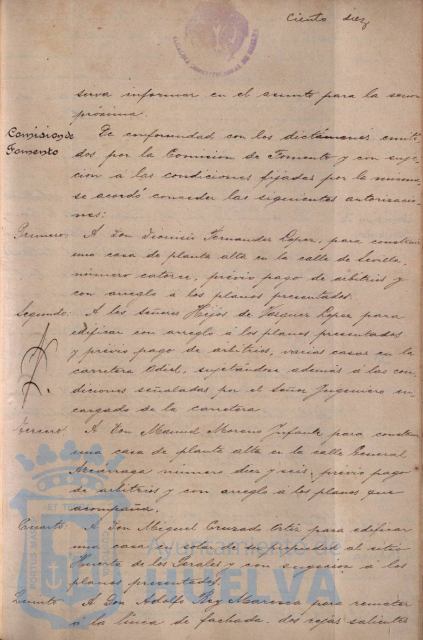 Ciento diez
sirva informar en el asunto para la sesion
próxima.
Comision de
Fomento
De conformidad con los dictámenes emiti-
dos por la Comision de Fomento y con suge-
cion á las condiciones fijadas por la misma
se acordó conceder las siguientes autorizacio-
nes:
Primero: A Don Dionisio Fernandez Lopez, para construir
una casa de planta alta en la calle de Sevilla,
número catorce, previo pago de arbitrios y
con arreglo á los planos presentados.
Segundo: A los señores Hijos de Vazquez Lopez para
edificar con arreglo á los planos presentados
y previo pago de arbitrios, varias casas en la
carretera Odiel, sujetándose además á las con-
diciones señaladas por el Señor Ingeniero en-
cargado de la carretera.
Tercero: A Don Manuel Moreno Infante para construir
una casa de planta alta en la calle General
Azcárraga número diez y seis, previo pago
de arbitrios y con arreglo á los planos que
acompaña.
Cuarto: A Don Miguel Cruzado Ortiz para edificar
una casa en solar de su propiedad al sitio
Huerta de los Perales y con sugecion á los
planos presentados.
Quinto: A Don Adolfo Rey Marenco para remeter
á la linea de fachada, dos rejas salientes
Ayuntamiento de
HUELVA